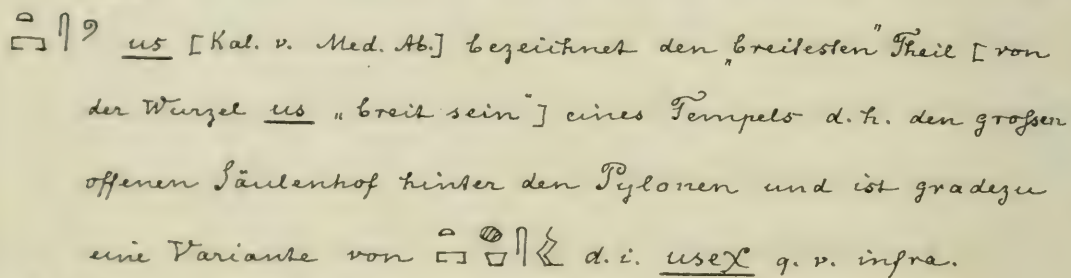 us [Kal. v. Med. Ab.] bezeichnet den „breitesten" Theil [von
der Wurzel us „breit sein"] eines Tempels d. h. den großen
offenen Säulenhof hinter den Pylonen und ist gradezu
eine Variante von d. i. useχ q. v. infra.